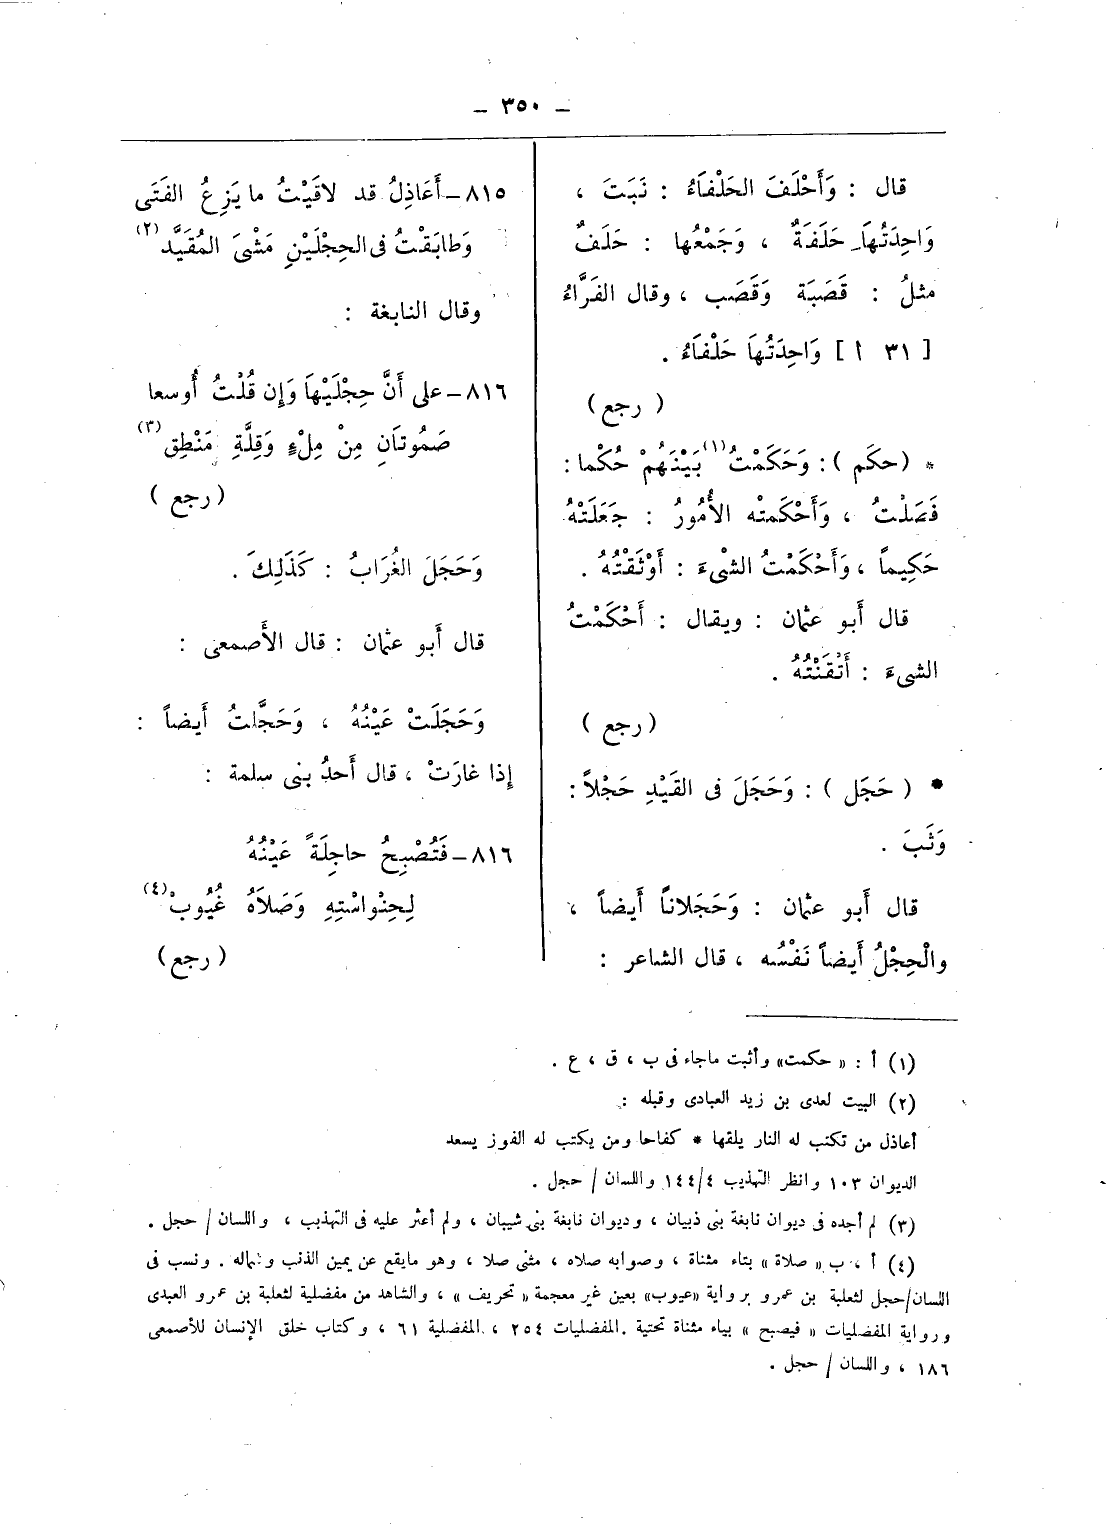 ـ ٣٥٠ ـ
قال : وَأَحْلَفَ الحَلْفَاءُ : نَبَتَ ،
وَاحِدَتُهَا حَلَفَةٌ ، وَجَمْعُها : حَلَفٌ
مثلُ : قَصَبَة وَقَصَب ، وقال الفَرَّاءُ
[ ٣١ أ ] وَاحِدَتُهَا حَلْفَاءُ .
( رجع )
* (حكَم ) : وَحَكَمْتُ(١) بَيْنَهُمْ حُكْما :
فَصَلْتُ ، وَأَحْكَمتْه الأُمُورُ : جَعَلَتْهُ
حَكِيماً ، وَأَحْكَمْتُ الشىءَ : أَوْثَقْتُهُ .
قال أَبو عثمان : ويقال : أَحْكَمْتُ
الشىءَ : أَتْقَنْتُهُ .
( رجع )
* ( حَجَل ) : وَحَجَلَ فى القَيْدِ حَجْلاً :
وَثَبَ .
قال أَبو عثمان : وَحَجَلاناً أَيضاً ،
والْحِجْلُ أَيضاً نَفْسُه ، قال الشاعر :
٨١٥ ـ أَعَاذِلُ قد لاقَيْتُ ما يَزِعُ الفَتَى
وَطابَقْتُ فى الحِجْلَيْنِ مَشْىَ المُقَيَّد(٢)
وقال النابغة :
٨١٦ ـ على أَنَّ حِجْلَيْهَا وَإِن قُلْتُ أُوسعا
صَمُوتَانِ مِنْ مِلْءٍ وَقِلَّةِ مَنْطِقِ(٣)
( رجع )
وَحَجَلَ الغُرَابُ : كَذَلِكَ .
قال أَبو عثمان : قال الأَصمعى :
وَحَجَلَتْ عَيْنُهُ ، وَحَجَّلتُ أَيضاً :
إِذا غارَتْ ، قال أَحدُ بنى سلمة :
٨١٦ ـ فَتُصْبِحُ حاجِلَةً عَيْنُهُ
لِحِنْواسْتِهِ وَصَلاَهُ غُيُوبْ(٤)
( رجع )
(١) أ : « حكمت» وأثبت ماجاء فى ب ، ق ، ع .
(٢) البيت لعدى بن زيد العبادى وقبله :
أعاذل من تكتب له النار يلقها * كفاحا ومن يكتب له الفوز يسعد
الديوان ١٠٣ وانظر التهذيب ١٤٤/٤ واللسان / حجل .
(٣) لم أجده فى ديوان نابغة بنى ذبيان ، وديوان نابغة بنى شيبان ، ولم أعثر عليه فى التهذيب ، واللسان / حجل .
(٤) أ ، ب « صلاة » بتاء مثناة ، وصوابه صلاه ، مثنى صلا ، وهو مايقع عن يمين الذنب وشماله . ونسب فى
اللسان/حجل لثعلبة بن عمرو برواية «عيوب» بعين غير معجمة « تحريف » ، والشاهد من مفضلية لثعلبة بن عمرو العبدى
ورواية المفضليات « فيصبح » بياء مثناة تحتية .المفضليات ٢٥٤ ، المفضلية ٦١ ، وكتاب خلق الإنسان للأصمعى
١٨٦ ، واللسان / حجل .